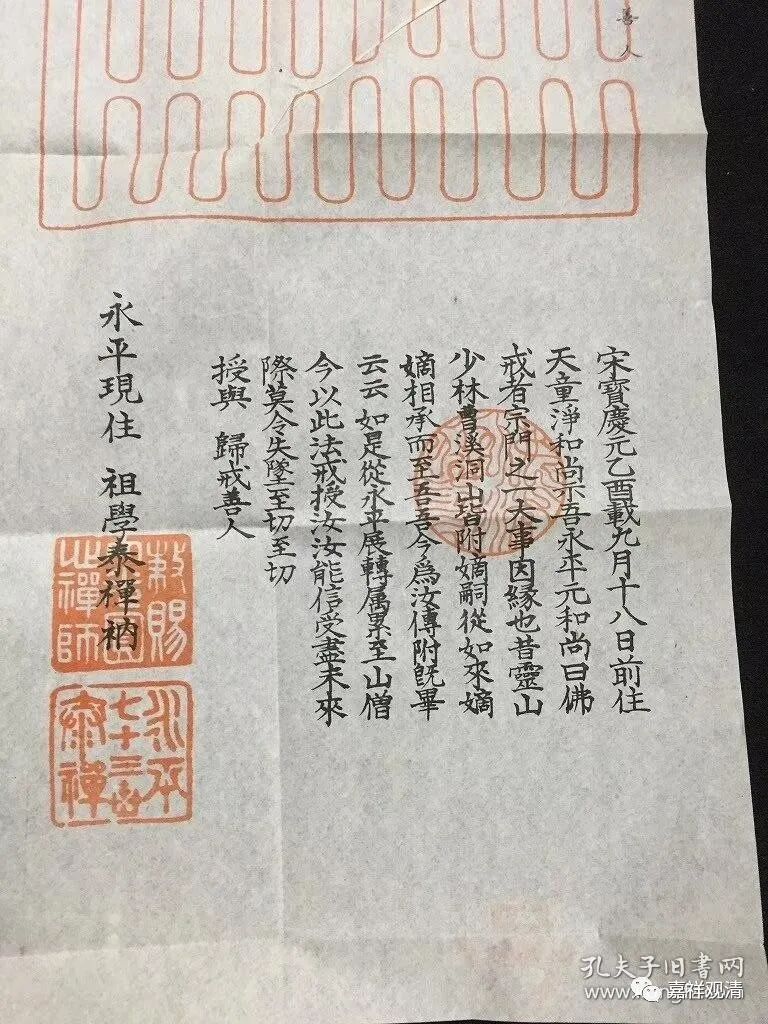 善人
宋寶慶元乙酉載九月十八日前住
天童淨和尚示吾永平元和尚曰佛
戒者宗門之一大事因縁也昔靈山
少林曹溪洞山皆附嫡嗣從如來嫡
嫡相承而至吾吾今爲汝傳附旣畢
云云如是從永平展轉属累至山僧
今以此法戒授汝汝能信受盡未來
際莫令失墜至切至切
授與 歸戒善人
永平現住 祖學泰禪衲
敕賜
禪師
永平
七十三世
泰禪
孔夫子旧书网
嘉祥观清